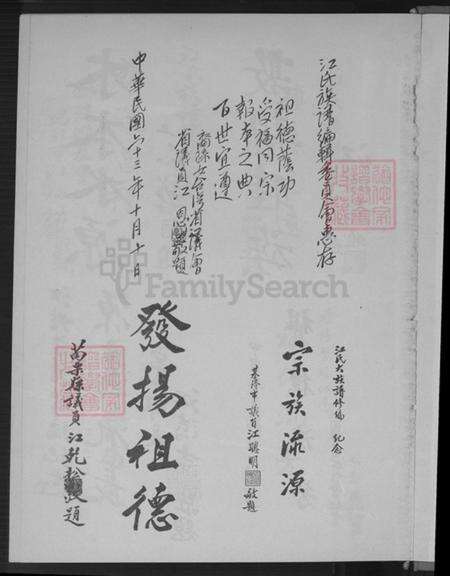 江氏族譜編輯委員會惠存
祖德蔭功
受福同宗
報本之典
百世宜遵
裔孫女台湾省議會
省議員江恩敬題
中華民國六十三年十月十日
江氏大族譜修編 紀念
宗族源流
基隆市議員江聰明 敬題
發揚祖德
苗栗縣議員江乾松敬題
FamilySearch